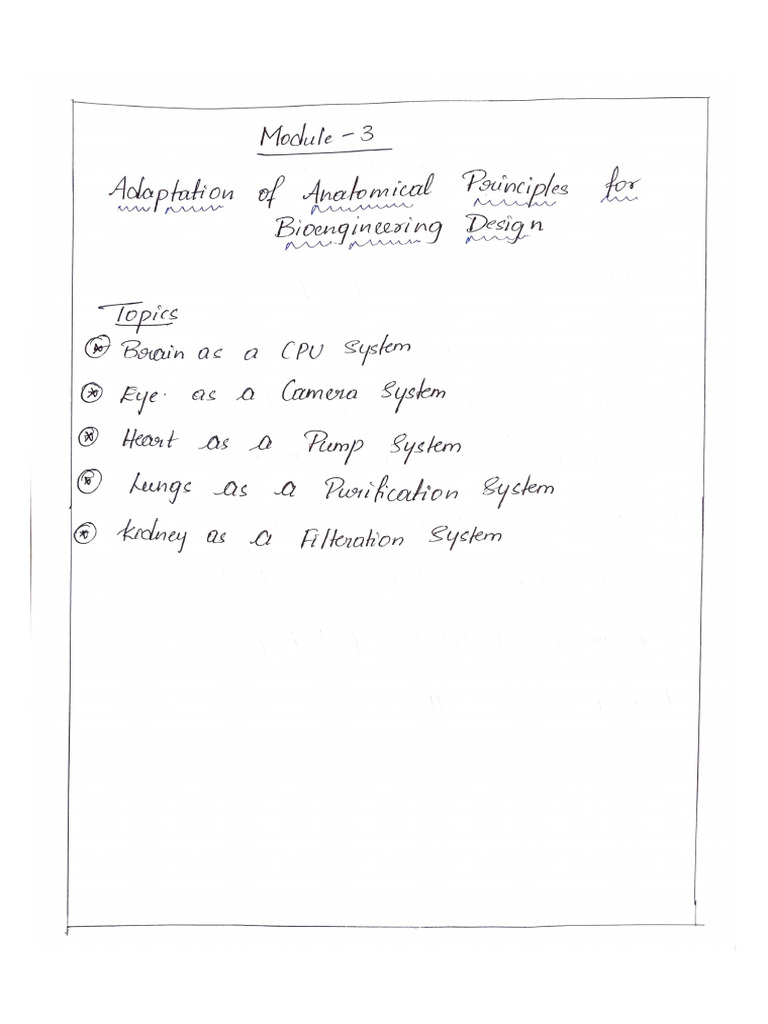 Module - 3
Adaptation of Anatomical Principles for
Bioengineering Design
Topics
Brain as a CPU System
Eye as a Camera System
Heart as a Pump System
Lungs as a Purification System
Kidney as a Filteration System